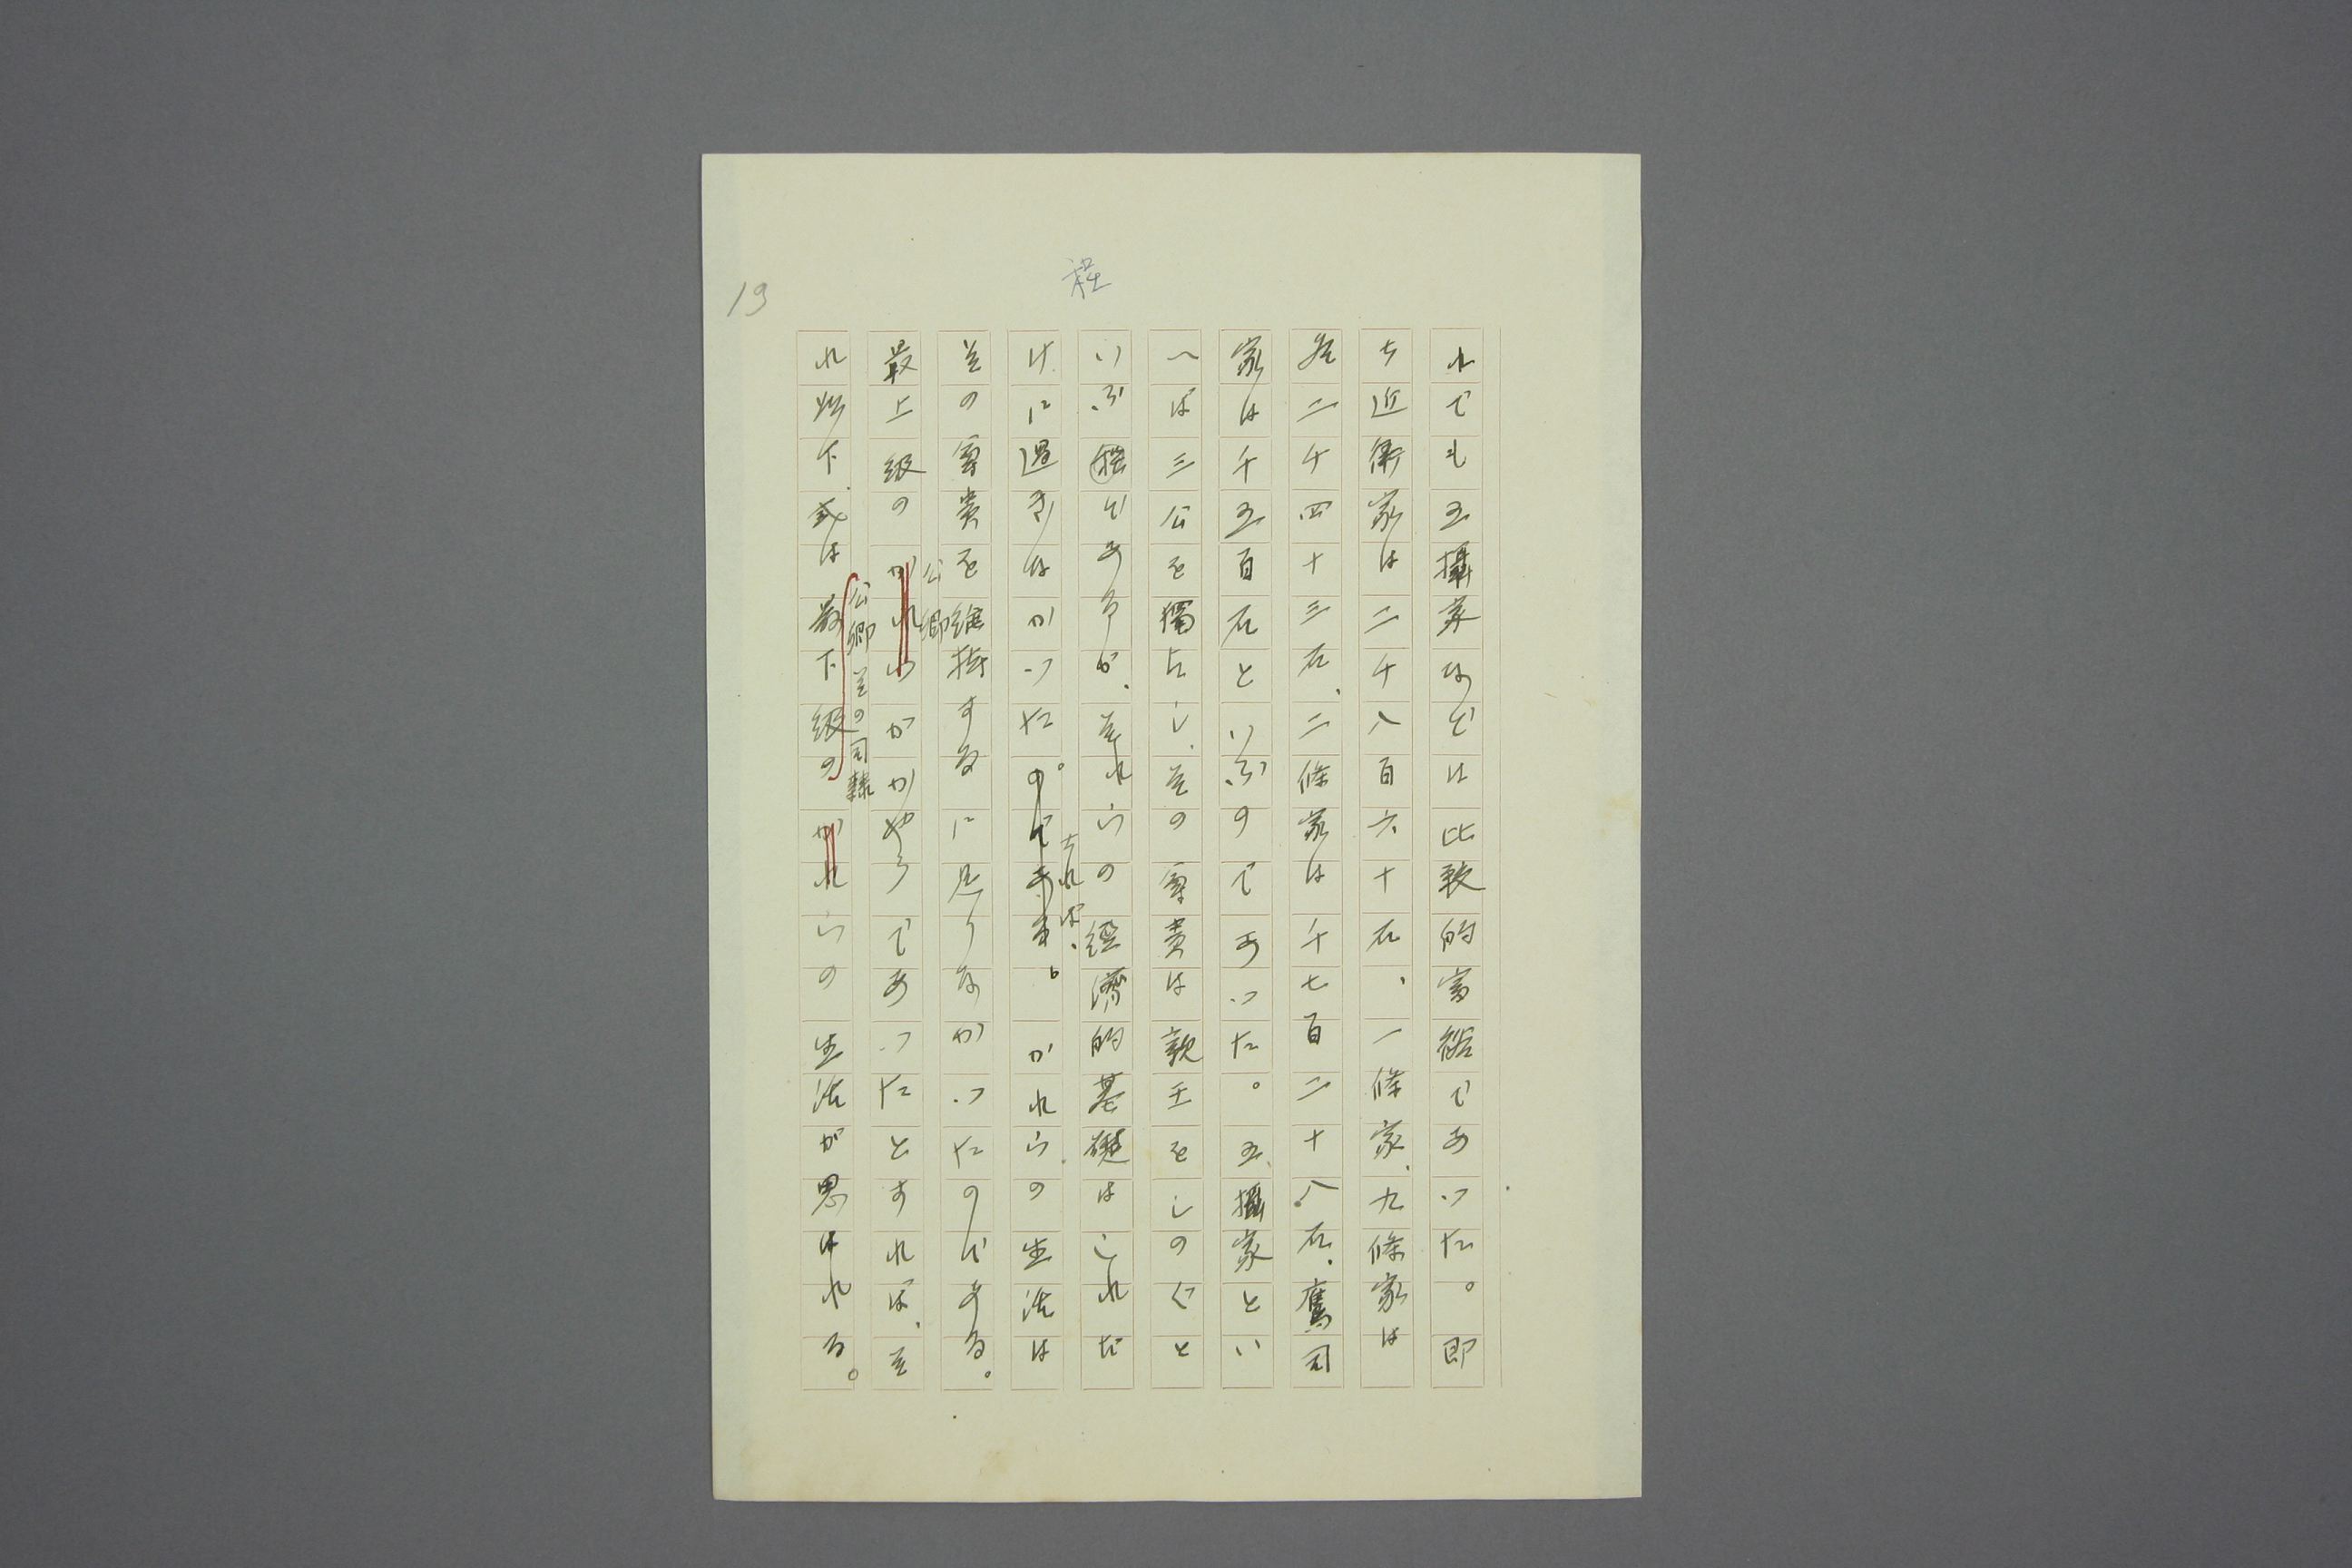 19
程
れでも五攝家などは比較的富裕であつた。即
ち近衛家は二千八百六十石、一條家、九條家は
各二千四十三石、二條家は千七百二十八石、鷹司
家は千五百石といふのであつた。五攝家とい
へば三公を獨占し、其の尊貴は親王をしのぐと
いふ程であるが、それらの經濟的基礎はこれだ
けに過ぎなかつた。のである。かれらの生活は
されば、
其の尊貴を維持するに足りなかつたのである。
公卿
最上級のかれらがかやうであつたとすれば、そ
公卿其の司隷
れ以下、或は最下級のかれらの生活が思はれる。